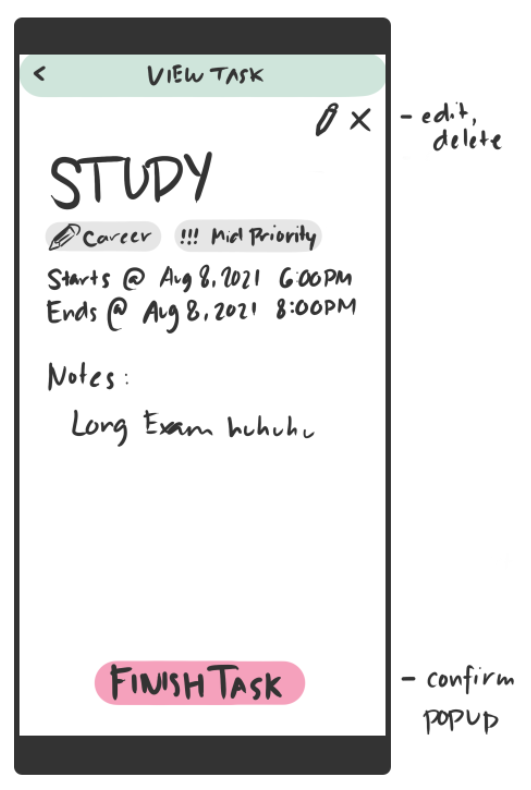 < VIEW TASK
- edit,
delete
STUDY
Career !!! Mid Priority
Starts @ Aug 8, 2021 6:00PM
Ends @ Aug 8, 2021 8:00PM
Notes:
Long Exam huhuhu
FINISH TASK
- confirm
POPUP